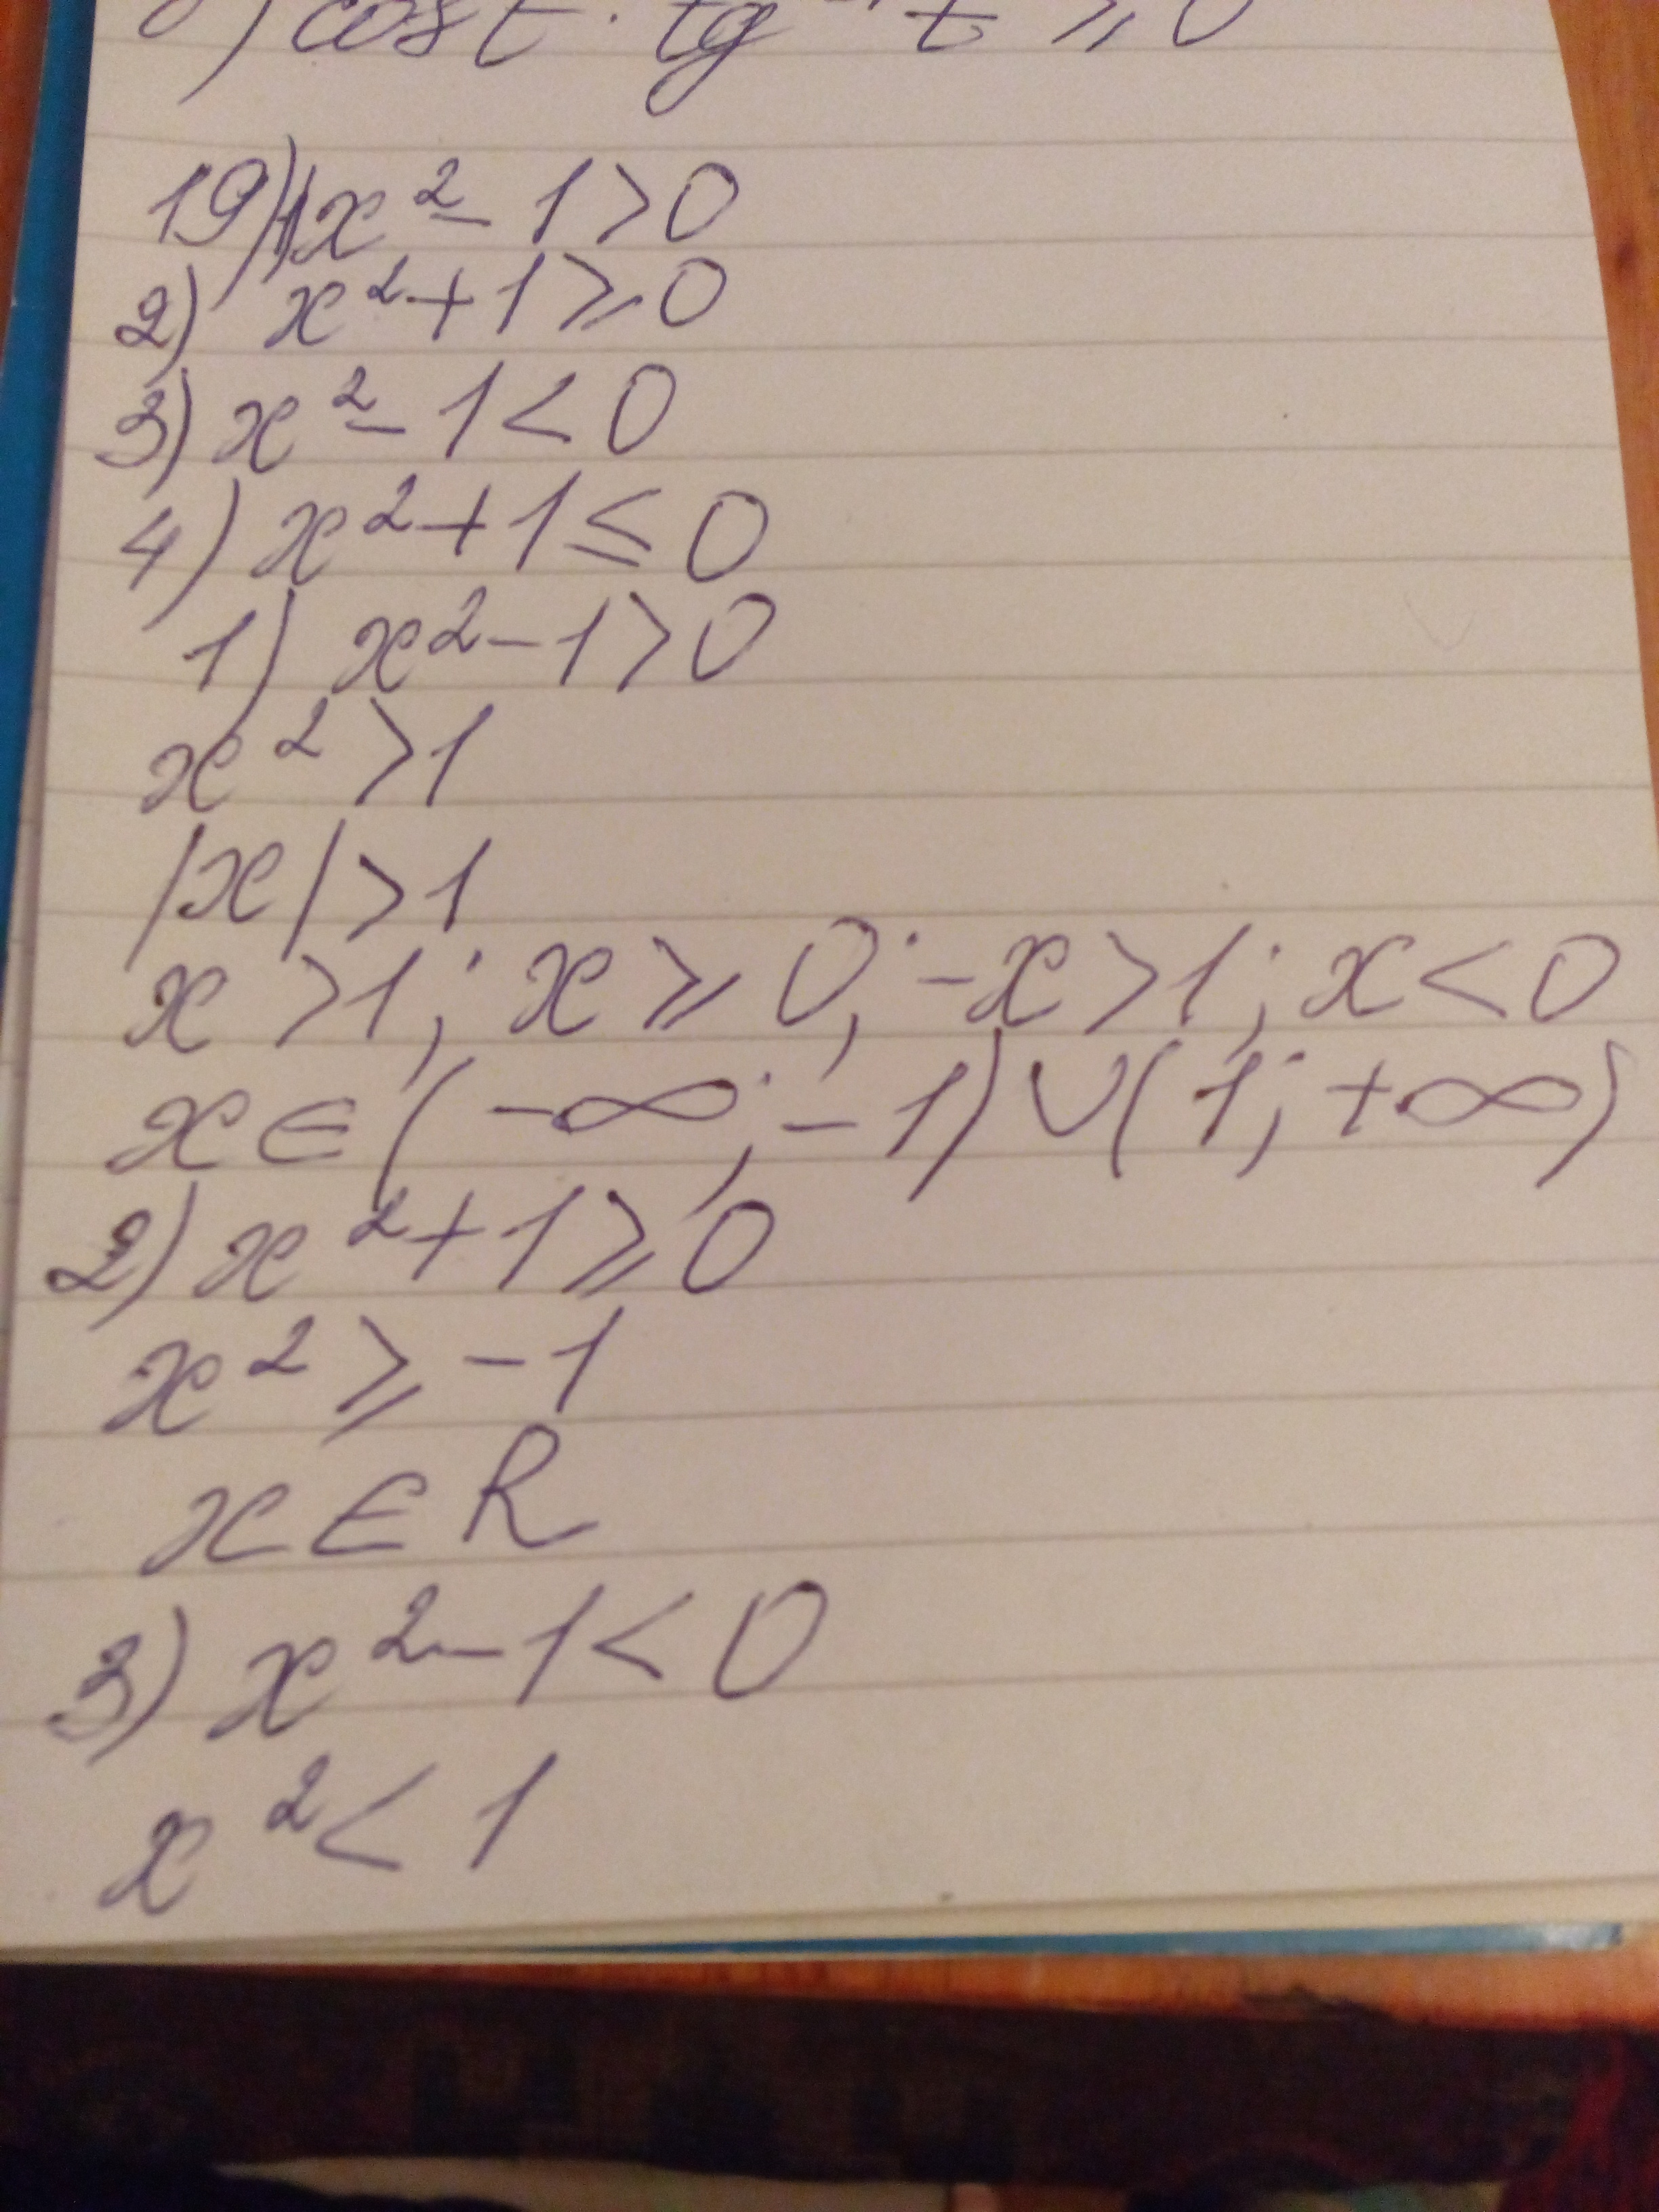 ) cos t · tg t ≥ 0
19) 1) x² - 1 > 0
2) x² + 1 ≥ 0
3) x² - 1 < 0
4) x² + 1 ≤ 0
1) x² - 1 > 0
x² > 1
|x| > 1
x > 1; x ≥ 0; -x > 1; x < 0
x ∈ (-∞; -1) ∪ (1; +∞)
2) x² + 1 ≥ 0
x² ≥ -1
x ∈ R
3) x² - 1 < 0
x² < 1